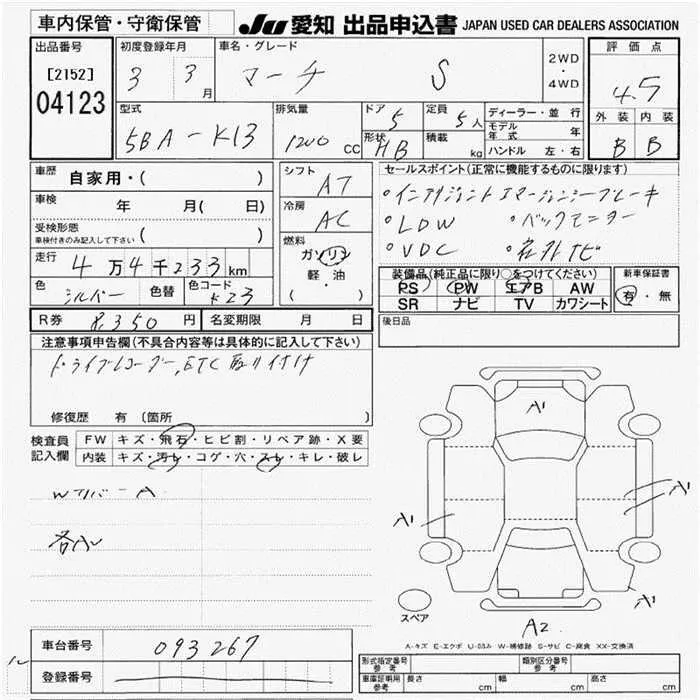 車内保管・守衛保管
JU 愛知 出品申込書 JAPAN USED CAR DEALERS ASSOCIATION
出品番号
[2152]
04123
初度登録年月
3 3月
車名・グレード
マーチ S
2WD
・
4WD
評価点
4.5
外装 内装
B B
型式
5BA-K13
排気量
1200 CC
ドア 5
定員 5人
形状 HB
積載 kg
ディーラー・並行
モデル年式 年
ハンドル 左・右
車歴 自家用・( )
車検 年 月( 日)
受検形態
車検付きのみ記入して下さい ( )
走行 4万4千233km
色 シルバー 色替 色コード K23
シフト AT
冷房 AC
燃料
ガソリン
軽・油
( )
セールスポイント(正常に機能するものに限ります)
◦インテリジェントエマージェンシーブレーキ
◦LDW ◦バックモニター
◦VDC ◦社外ナビ
装備品(純正品に限り○をつけてください)
PS PW エアB AW
SR ナビ TV カワシート
新車保証書
有・無
R券 8,350円 名変期限 月 日
後日品
注意事項申告欄(不具合内容等は具体的に記入して下さい)
ドライブレコーダー、ETC取り付け
修復歴 有〔箇所 〕
検査員
記入欄
FW キズ・飛石・ヒビ割・リペア跡・X要
内装 キズ・汚レ・コゲ・穴・スレ・キレ・破レ
WリバーA
各A
A1
A1
A1
A1
A2
スペア
A-キズ E-エクボ U-凹み W-補修跡 S-サビ C-腐食 XX-交換済
車台番号 093267
登録番号
形式指定番号
参考
類別区分番号
参考
車庫証明用
参考
長さ cm 幅 cm 高さ cm